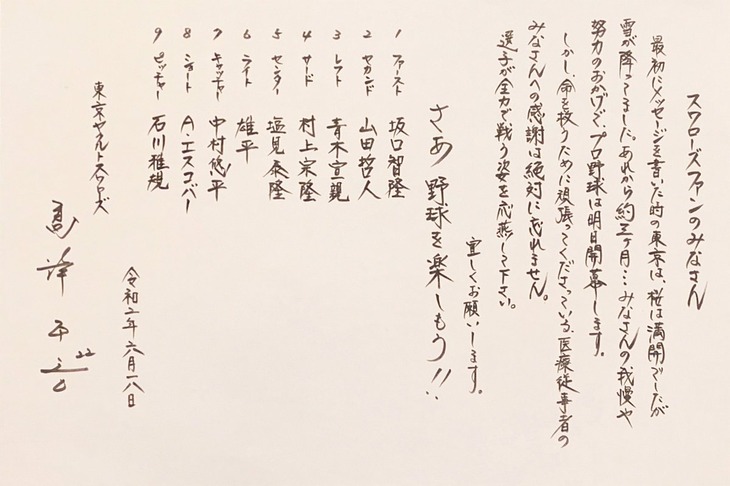 スワローズファンのみなさん
最初にメッセージを書いた時の東京は、桜は満開でしたが
雪が降ってました。あれから約三ヶ月…みなさんの我慢や
努力のおかげで、プロ野球は明日開幕します。
しかし、命を救うために頑張ってくださっている、医療従事者の
みなさんへの感謝は絶対に忘れません。
選手が全力で戦う姿を応燕して下さい。
宜しくお願いします。
さあ野球を楽しもう!!
1 ファースト 坂口智隆
2 セカンド 山田哲人
3 レフト 青木宣親
4 サード 村上宗隆
5 センター 塩見泰隆
6 ライト 雄平
7 キャッチャー 中村悠平
8 ショート A・エスコバー
9 ピッチャー 石川雅規
令和二年六月一八日
東京ヤクルトスワローズ
高津臣吾 22